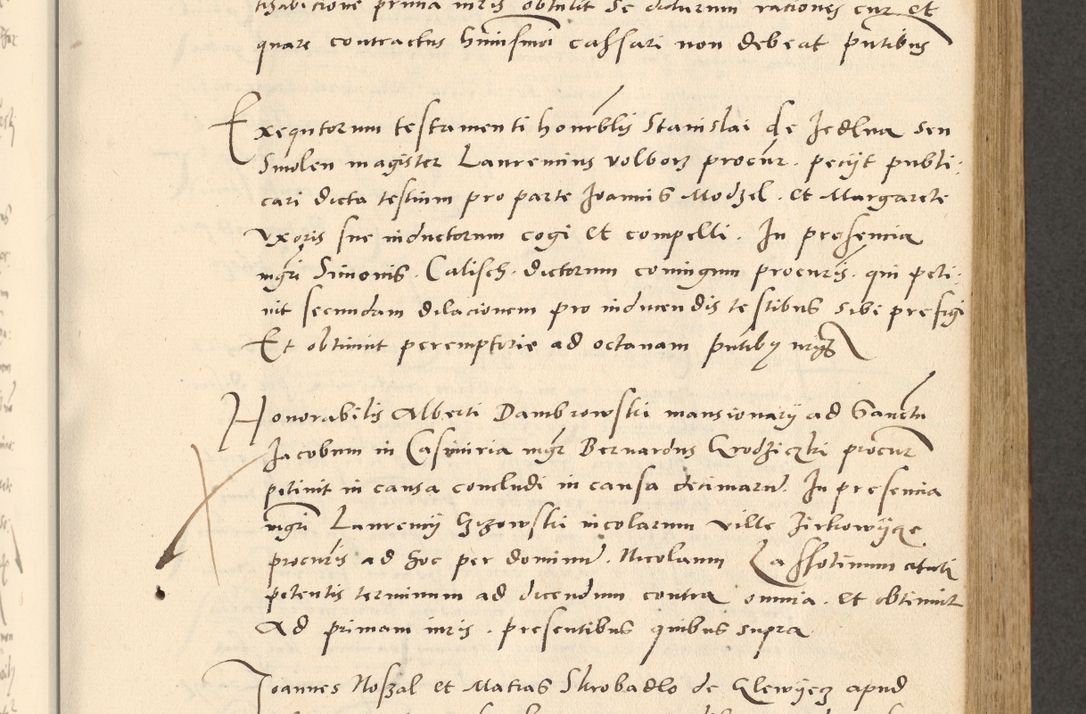 prima iuris obtulit se daturum rationes cur et
quare contractus hmoi cassari non debeat pntibus
Exequtorum testamenti honrblis Stanislai de Jedlna seu
Smolen magister Laurencius Volborz procur. peciit publi:
cari dicta testium pro parte Joannis Modzel. et Margarete
vxoris sue inductorum cogi et compelli. In presencia
mgri Simonis. Calisch. dictorum coniugum procuris. qui peti:
uit secundam dilacionem pro inducendis testibus sibi prefigi
Et obtinuit peremptorie ad octauam pntibus
Honorabilis Alberti Dambrowski mansionarij ad Sanctum
Jacobum in Casimiria mgr Bernardus Grodziczki procur
petiuit in causa concludi in causa decimarum. In presencia
mgri Laurencij incolarum ville
procuris ad hoc per dominum. Nicolaum citati
petentis terminum ad dicendum contra omnia. et obtinuit
Ad primam iuris. presentibus quibus supra
Joannes Noszal et Matias Skrobadlo de apud